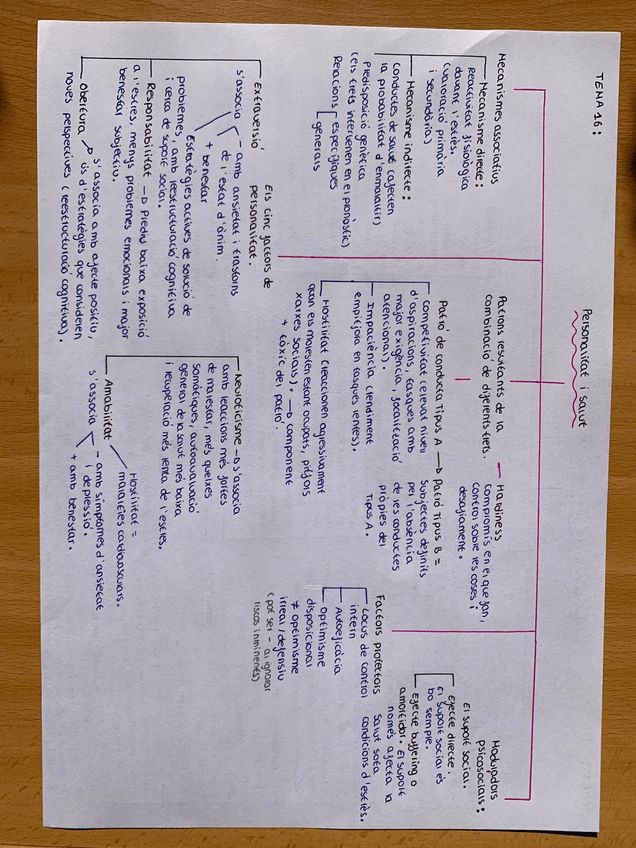 TEMA 16:
Personalitat i salut
Mecanismes associatius
Mecanisme directe:
Reactivitat fisiològica
davant l'estrès.
(valoració primària
i secundària)
Mecanisme indirecte:
Conductes de salut (afecten
la probabilitat d'enmalaltir)
Predisposició genètica
(els trets intervenen en el pronòstic)
Relacions [ específiques
generals
Patrons resultants de la
combinació de diferents trets.
Hardiness
Compromís en el que fan,
control sobre les coses i
desafiament.
Patró de conducta Tipus A
Competitivitat (elevat nivell
d'aspiracions, tasques amb
major exigència, focalització
atencional).
Impaciència (rendiment
empitjora en tasques lentes).
Hostilitat (reaccionen agressivament
quan els molesten estant ocupats, pitjors
xarxes socials). → component
+ tòxic del patró.
Patró Tipus B =
Subjectes definits
per l'absència
de les conductes
pròpies del
Tipus A.
Factors protectors
Locus de control
intern
Autoeficàcia
Optimisme
disposicional
≠ optimisme
irreal/defensiu
(pot ser - al ignorar
riscos inminents)
Moduladors
psicosocials:
El suport social.
Efecte directe.
El suport social és
bo sempre.
Efecte buffering o
amortidor. El suport
només afecta la
salut sota
condicions d'estrès.
Els cinc factors de
personalitat.
Extraversió
s'associa - amb ansietat i trastorns
de l'estat d'ànim.
+ benestar
Estratègies actives de solució de
problemes, amb reestructuració cognitiva
i cerca de suport social.
Responsabilitat → Prediu baixa exposició
a l'estrès, menys problemes emocionals i major
benestar subjectiu.
Obertura → s'associa amb afecte positiu,
ús d'estratègies que consideren
noves perspectives (reestructuració cognitiva).
Neuroticisme → s'associa
amb reaccions més fortes
de malestar, més queixes
somàtiques, autoavaluació
general de la salut més baixa
i recuperació més lenta de l'estrès.
Amabilitat
Hostilitat =
malalties cardiovasculars.
s'associa - amb símptomes d'ansietat
i depressió.
+ amb benestar.